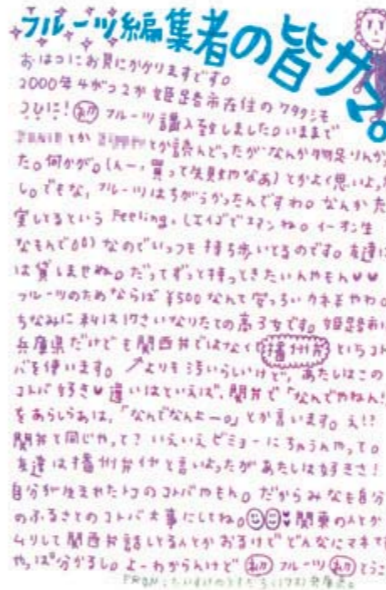 フルーツ編集者の皆サマ。
おはつにお目にかかりますです。
2000年4が
姫路市在住のワタクシモ
ついに! フルーツ購入致しました。いままで
とか Zipper とか読んどったがなんか物足りんかっ
た。何かが。(んー、買って失敗やなあ)とかよく思いよっ
し。でもな、フルーツはちがうかったんですわ。なんか充
実しとるという Feeling。
なもんで なのでいっつも持ち歩いとるのです。友達に
は貸しませぬ。だってずっと持っときたいんやもん♥♥
フルーツのためならば¥500なんて安っちいカネやわ。
ちなみに私は17さいなりたての高3女です。姫路市は
兵庫県だけども関西弁ではなく播州弁というコト
バを使います。よりも汚いらしいけど。あたしはこの
コトバ好き♥違いはといえば、関弁で「なんでやねん!」
をあらしらあは、「なんでなんよー。」とか言います。え!?
関弁と同じやって?いえいえビミョーにちゃうんやって。
友達は播州弁イヤと言いよったがあたしは好きさ!
自分が生まれたトコのコトバやもん。だからみなも自分
のふるさとのコトバ大事にしてね。☺☺♥関東の人とか
ムリして関西弁話しとる人とかおるけどどんなにマネて
やっぱ分かるし。よーわからんけど 祝 フルーツ 祝 とうこ
FROM: